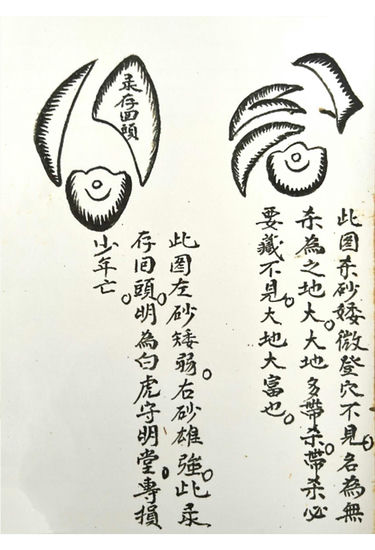 此图杀砂矮微登穴不見。名為無
杀為之地大。大地多帶杀。帶杀必
要藏不見。大地大富也。
录存囬頭
此图左砂矮弱。右砂雄強。此录
存囬頭。明為白虎守明堂。專損
少年亡。